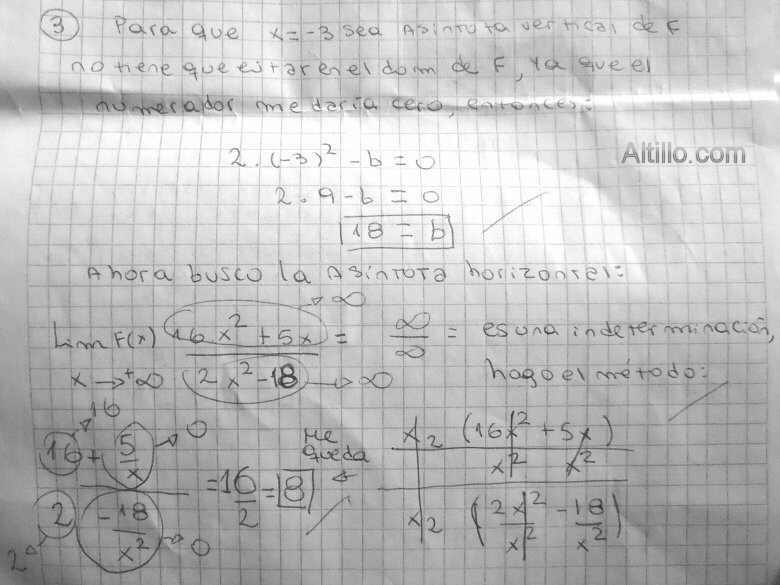 ③ Para que x=-3 sea Asíntota vertical de F
no tiene que estar en el dom de F, ya que el
numerador me daría cero, entonces:
2 . (-3)² - b = 0
Altillo.com
2 . 9 - b = 0
18 = b
Ahora busco la Asíntota horizontal:
→ ∞
Lim F(x) 16x² + 5x = ∞/∞ = es una indeterminación,
x → +∞ 2x² - 18 → ∞ hago el método:
16 + 5/x → 0
2 - 18/x² → 0
= 16/2 = 8
me queda
x² (16x²/x² + 5x/x²)
x² (2x²/x² - 18/x²)